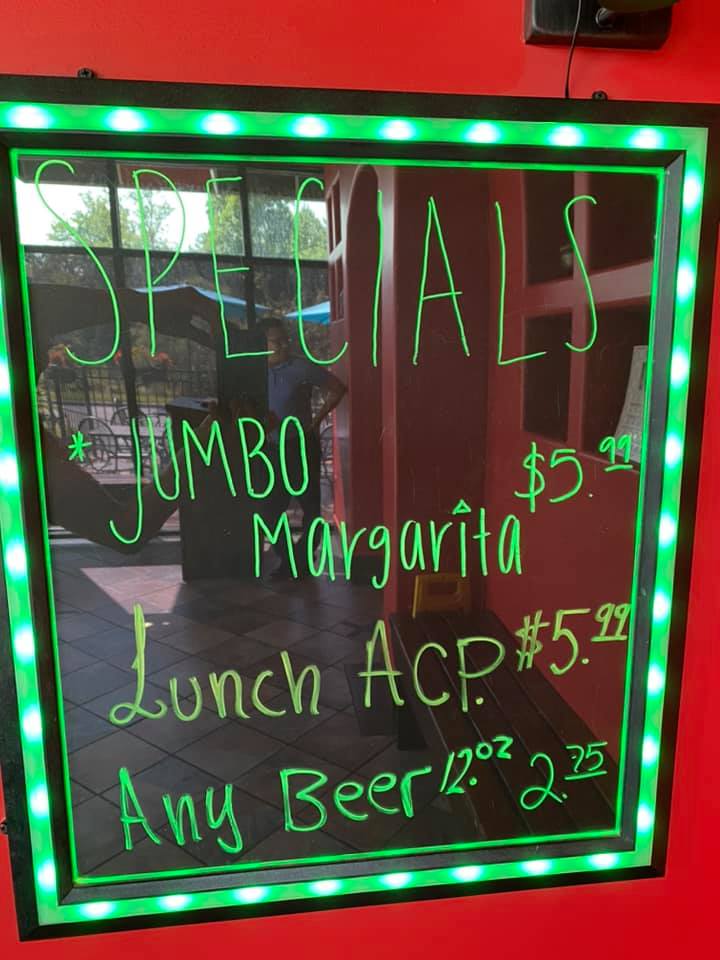 SPECIALS
* JUMBO
Margarita $5.99
Lunch ACP. $5.99
Any Beer 12.oz 2.75